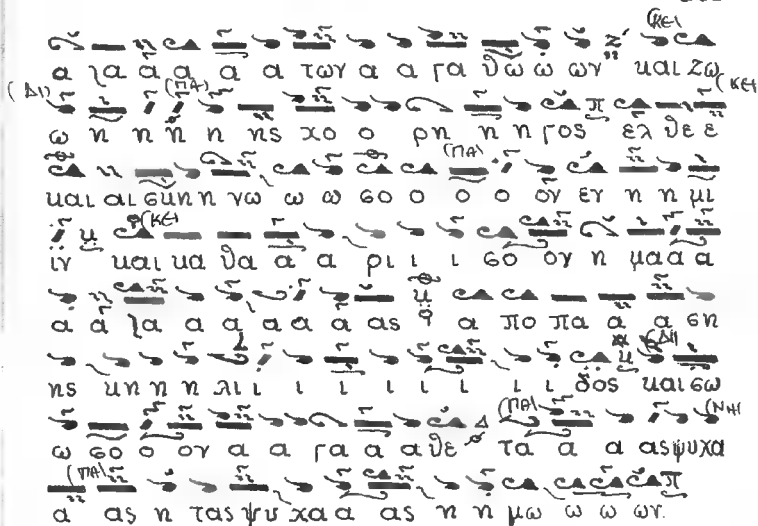 (ΚΕ)
α γα α α α α των α α γα θω ω ων και ζω
(ΔΙ) (ΠΑ) (ΚΕ)
ω η η η η ης χο ο ρη η η γος ελ θε ε
(ΠΑ)
και αι σκη η νω ω ω σο ο ο ο ον εν η η μι
(ΚΕ)
ιν και κα θα α α ρι ι ι σο ον η μα α α
α α γα α α α α α ας α πο πα α α ση
(ΔΙ)
ης κη η η λι ι ι ι ι ι ι ι δος και σω
(ΠΑ) (ΝΗ)
ω σο ο ον α α γα α α θε τα α α ας ψυχα
(ΠΑ)
α ας η τας ψυ χα α ας η η μω ω ω ων.